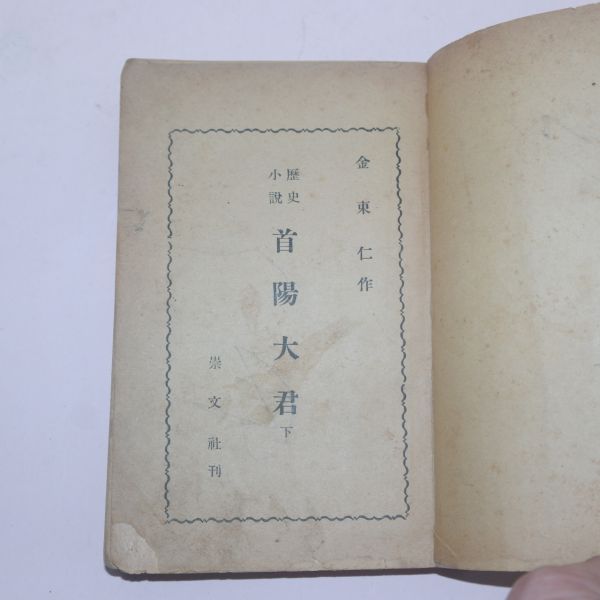 金東仁作
歷史
小說
首陽大君 下
崇文社刊